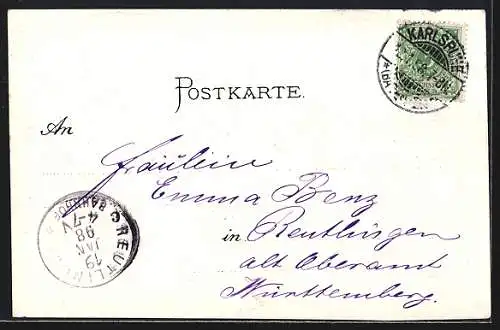 KARLSRUHE
POSTKARTE.
An
Fräulein
Emma Benz
in Reutlingen
alt Oberamt
Württemberg.
REUTLINGEN
BAHNHOF
4-7N
19
JAN
98